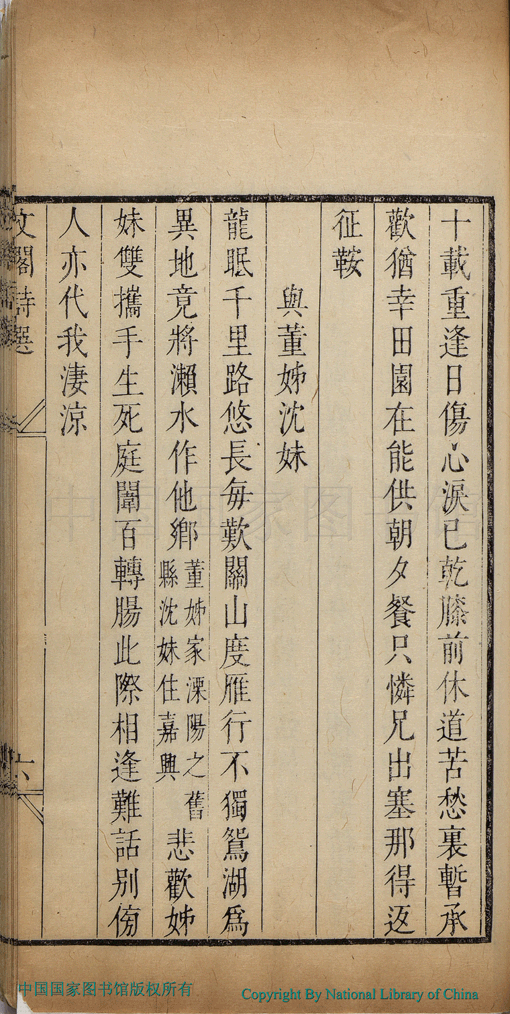 十載重逢日傷心淚已乾膝前休道苦愁裏暫承
歡猶幸田園在能供朝夕餐只憐兄出塞那得返
征鞍
與董姊沈妹
龍眠千里路悠長每歎關山度雁行不獨鴛湖爲
異地竟將瀨水作他鄉董姊家溧陽之舊縣沈妹住嘉興悲歡姊
妹雙攜手生死庭闈百轉腸此際相逢難話別傍
人亦代我淒涼
文閣詩選
六
中国国家图书馆
中国国家图书馆版权所有
Copyright By National Library of China